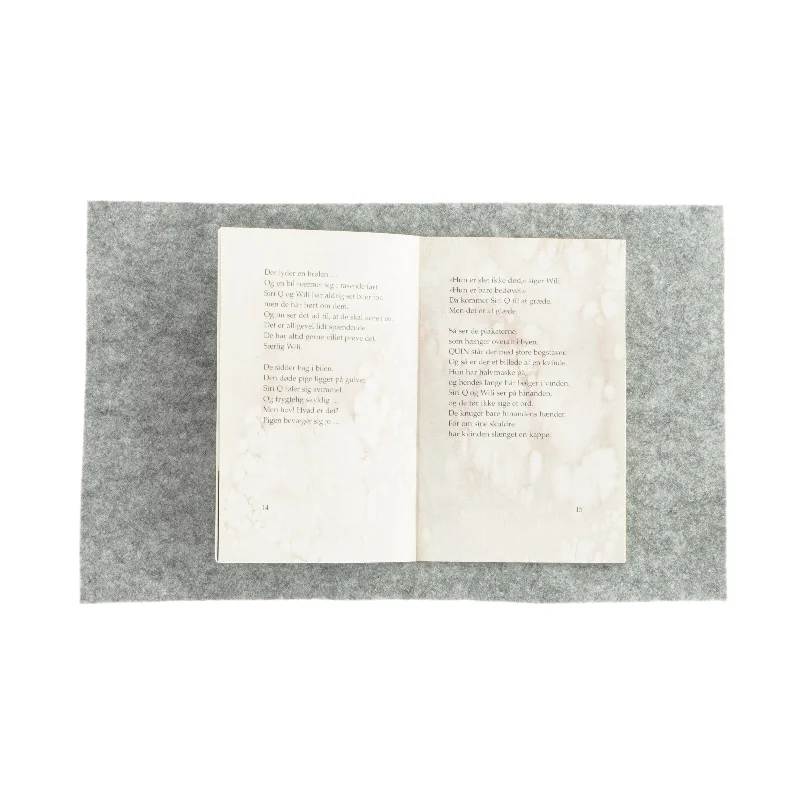 Der lyder en brølen ...
Og en bil nærmer sig i rasende fart.
Siri Q og Wili har aldrig set biler før,
men de har hørt om dem.
Og nu ser det ud til, at de skal køre i en.
Det er alligevel lidt spændende.
De har altid gerne villet prøve det.
Særlig Wili.
De sidder bag i bilen.
Den døde pige ligger på gulvet.
Siri Q føler sig svimmel.
Og frygtelig skyldig ...
Men hov! Hvad er det?
Pigen bevæger sig jo ...
14
»Hun er slet ikke død,« siger Wili.
»Hun er bare bedøvet.«
Da kommer Siri Q til at græde.
Men det er af glæde.
Så ser de plakaterne,
som hænger overalt i byen.
QUIN står der med store bogstaver.
Og så er der et billede af en kvinde.
Hun har halvmaske på,
og hendes lange hår bølger i vinden.
Siri Q og Wili ser på hinanden,
og de tør ikke sige et ord.
De knuger bare hinandens hænder.
For om sine skuldre
har kvinden slænget en kappe.
15